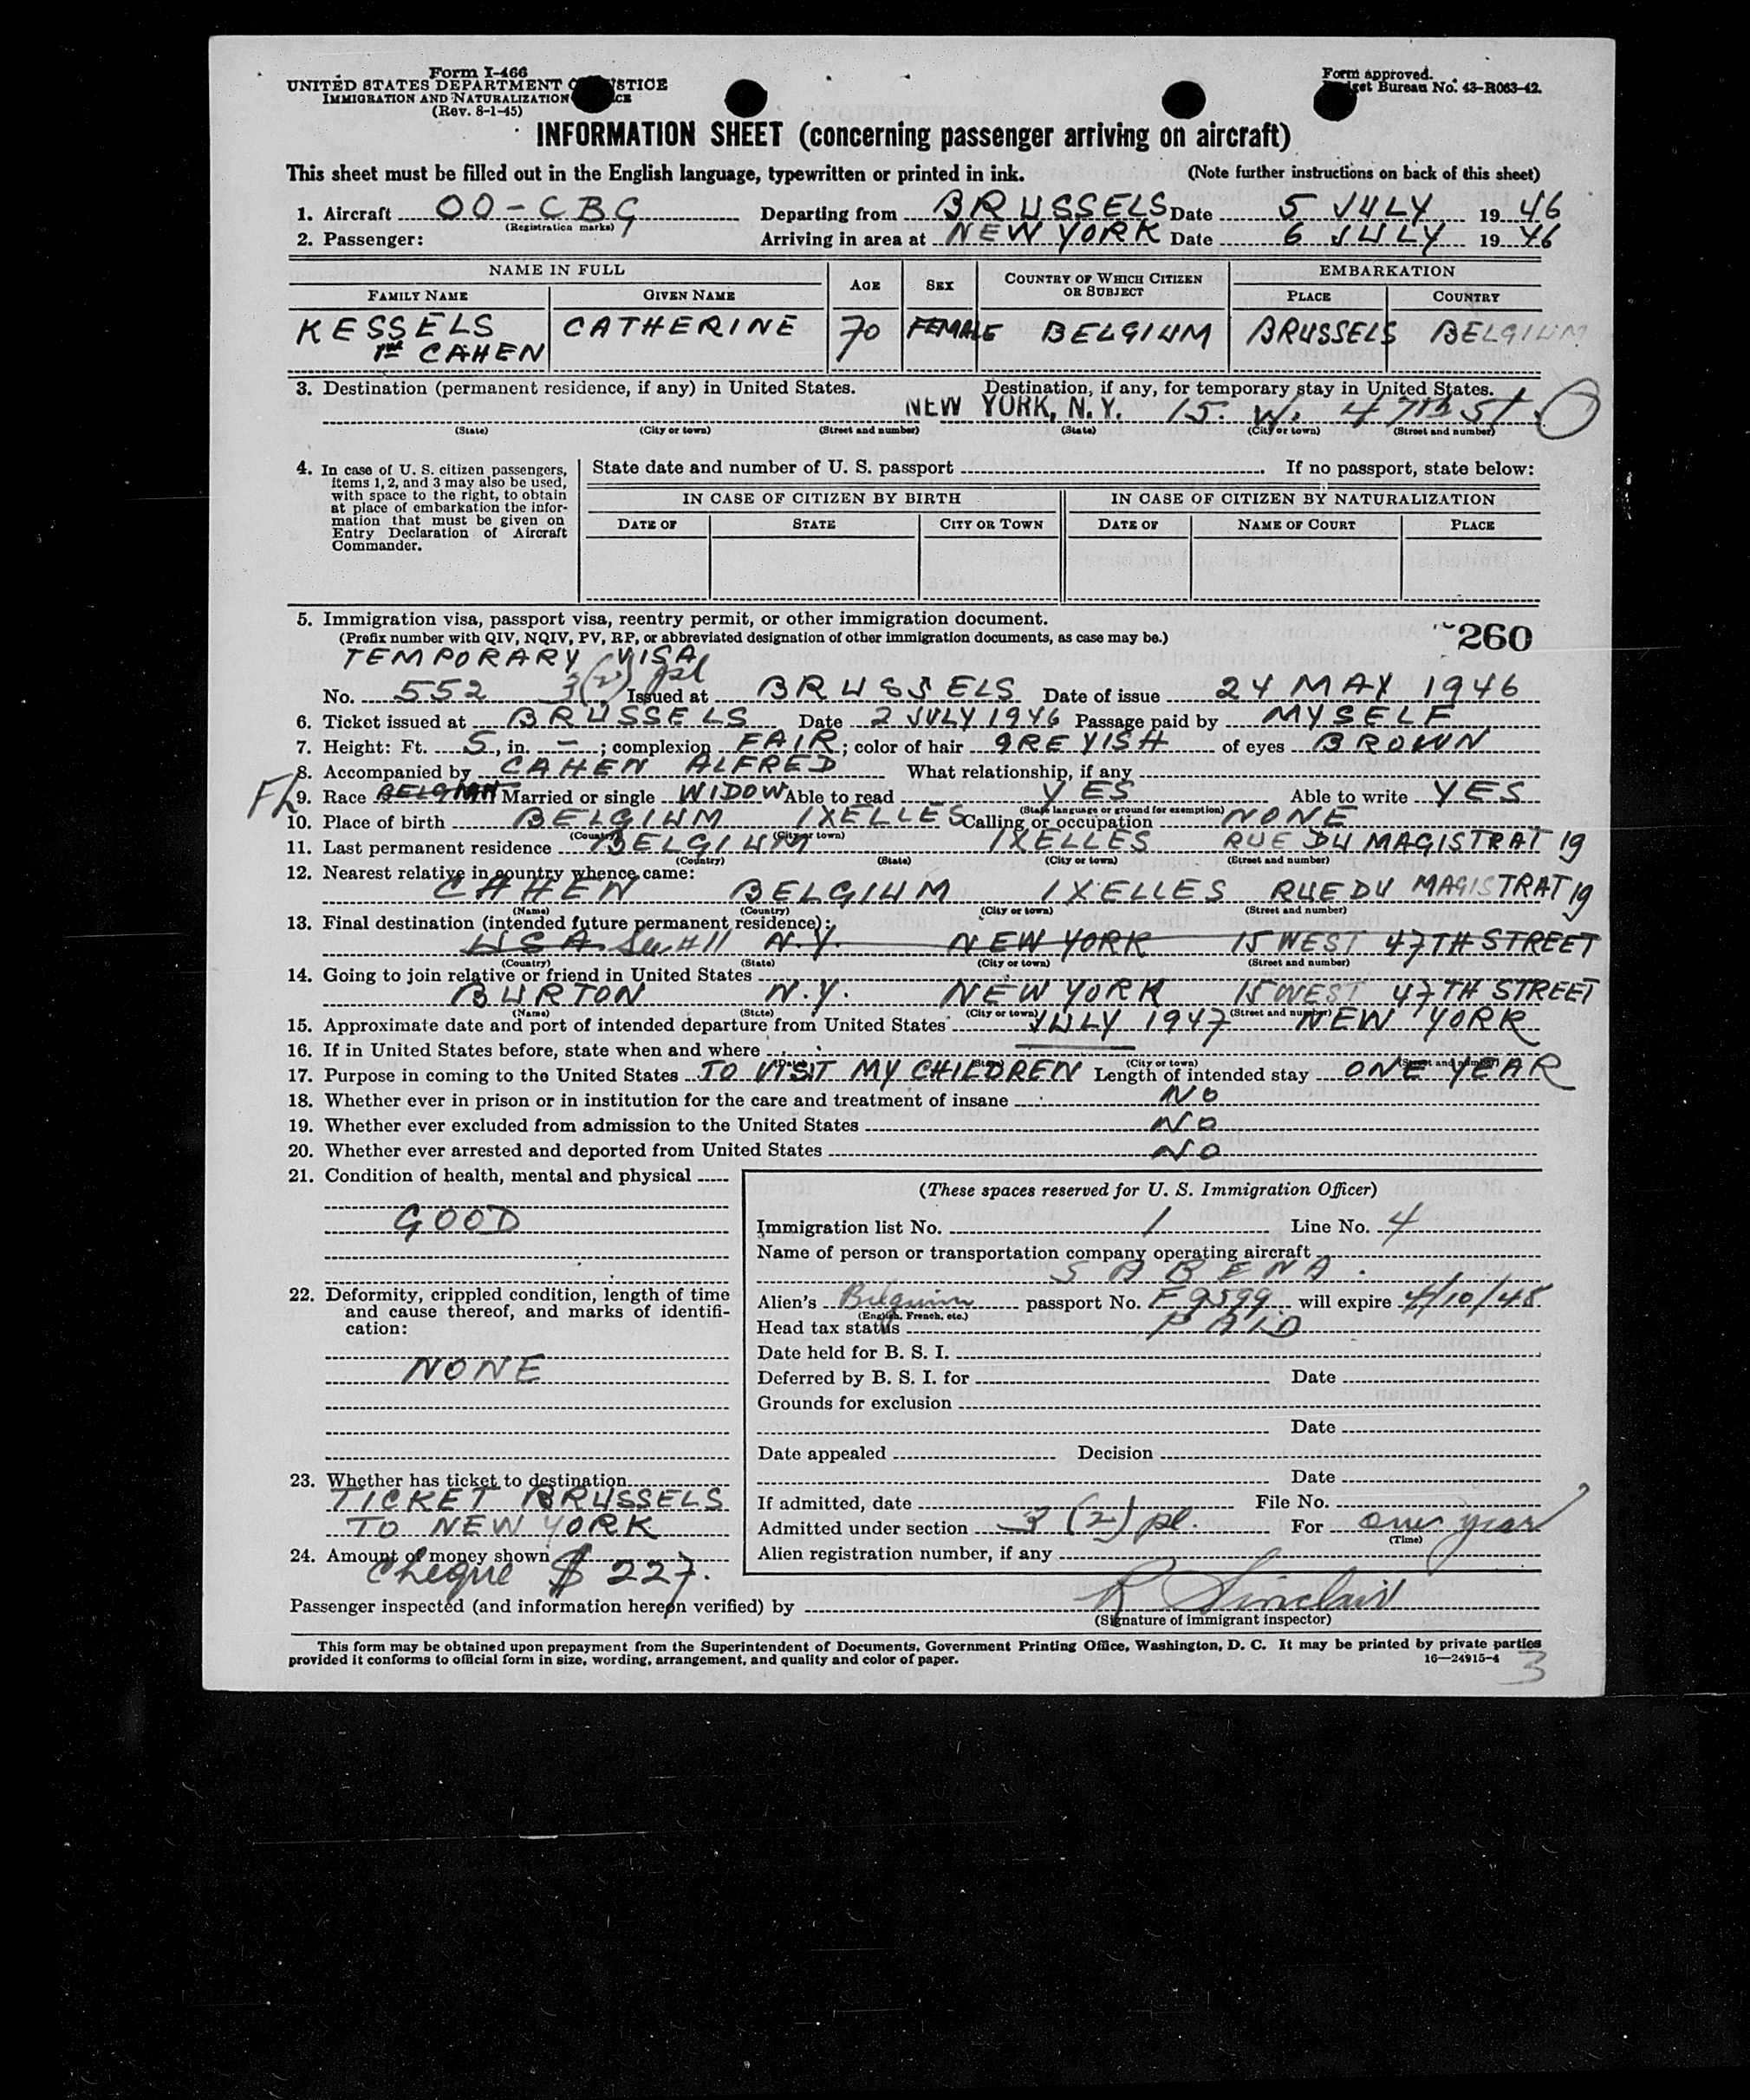 Form I-466
UNITED STATES DEPARTMENT OF JUSTICE
IMMIGRATION AND NATURALIZATION SERVICE
(Rev. 8-1-45)
Form approved.
Budget Bureau No. 43-R063-42.
INFORMATION SHEET (concerning passenger arriving on aircraft)
This sheet must be filled out in the English language, typewritten or printed in ink. (Note further instructions on back of this sheet)
1. Aircraft OO-CBG Departing from BRUSSELS Date 5 JULY 1946
(Registration marks)
2. Passenger: Arriving in area at NEW YORK Date 6 JULY 1946
NAME IN FULL AGE SEX COUNTRY OF WHICH CITIZEN OR SUBJECT EMBARKATION
FAMILY NAME GIVEN NAME PLACE COUNTRY
KESSELS CATHERINE 70 FEMALE BELGIUM BRUSSELS BELGIUM
CAHEN
3. Destination (permanent residence, if any) in United States. Destination, if any, for temporary stay in United States.
NEW YORK, N.Y. 15. W. 47th St
(State) (City or town) (Street and number) (State) (City or town) (Street and number)
4. In case of U. S. citizen passengers, items 1, 2, and 3 may also be used, with space to the right, to obtain at place of embarkation the information that must be given on Entry Declaration of Aircraft Commander.
State date and number of U. S. passport . If no passport, state below:
IN CASE OF CITIZEN BY BIRTH IN CASE OF CITIZEN BY NATURALIZATION
DATE OF STATE CITY OR TOWN DATE OF NAME OF COURT PLACE
5. Immigration visa, passport visa, reentry permit, or other immigration document.
(Prefix number with QIV, NQIV, PV, RP, or abbreviated designation of other immigration documents, as case may be.)
260
TEMPORARY VISA
No. 552 3(2) pl Issued at BRUSSELS Date of issue 24 MAY 1946
6. Ticket issued at BRUSSELS Date 2 JULY 1946 Passage paid by MYSELF
7. Height: Ft. 5, in. –; complexion FAIR; color of hair GREYISH of eyes BROWN
8. Accompanied by CAHEN ALFRED What relationship, if any
9. Race BELGIAN Married or single WIDOW Able to read YES Able to write YES
(State language or ground for exemption)
10. Place of birth BELGIUM IXELLES Calling or occupation NONE
(Country) (City or town)
11. Last permanent residence BELGIUM IXELLES RUE DU MAGISTRAT 19
(Country) (State) (City or town) (Street and number)
12. Nearest relative in country whence came:
CAHEN BELGIUM IXELLES RUE DU MAGISTRAT 19
(Name) (Country) (City or town) (Street and number)
13. Final destination (intended future permanent residence):
USA See #11 N.Y. NEW YORK 15 WEST 47TH STREET
(Country) (State) (City or town) (Street and number)
14. Going to join relative or friend in United States
BURTON N.Y. NEW YORK 15 WEST 47TH STREET
(Name) (State) (City or town) (Street and number)
15. Approximate date and port of intended departure from United States JULY 1947 NEW YORK
16. If in United States before, state when and where
(Date) (State) (City or town) (Street and number)
17. Purpose in coming to the United States TO VISIT MY CHILDREN Length of intended stay ONE YEAR
18. Whether ever in prison or in institution for the care and treatment of insane NO
19. Whether ever excluded from admission to the United States NO
20. Whether ever arrested and deported from United States NO
21. Condition of health, mental and physical
GOOD
22. Deformity, crippled condition, length of time and cause thereof, and marks of identification:
NONE
23. Whether has ticket to destination
TICKET BRUSSELS
TO NEW YORK
24. Amount of money shown
Cheque $ 227.
(These spaces reserved for U. S. Immigration Officer)
Immigration list No. 1 Line No. 4
Name of person or transportation company operating aircraft
SABENA.
Alien's Belgium passport No. F9599 will expire 4/10/48
(English, French, etc.)
Head tax status PAID
Date held for B. S. I.
Deferred by B. S. I. for Date
Grounds for exclusion
Date
Date appealed Decision
Date
If admitted, date File No.
Admitted under section 3(2) pl. For one year
(Time)
Alien registration number, if any
Passenger inspected (and information hereon verified) by R Sinclair
(Signature of immigrant inspector)
This form may be obtained upon prepayment from the Superintendent of Documents, Government Printing Office, Washington, D. C. It may be printed by private parties
provided it conforms to official form in size, wording, arrangement, and quality and color of paper. 16—24915-4
3